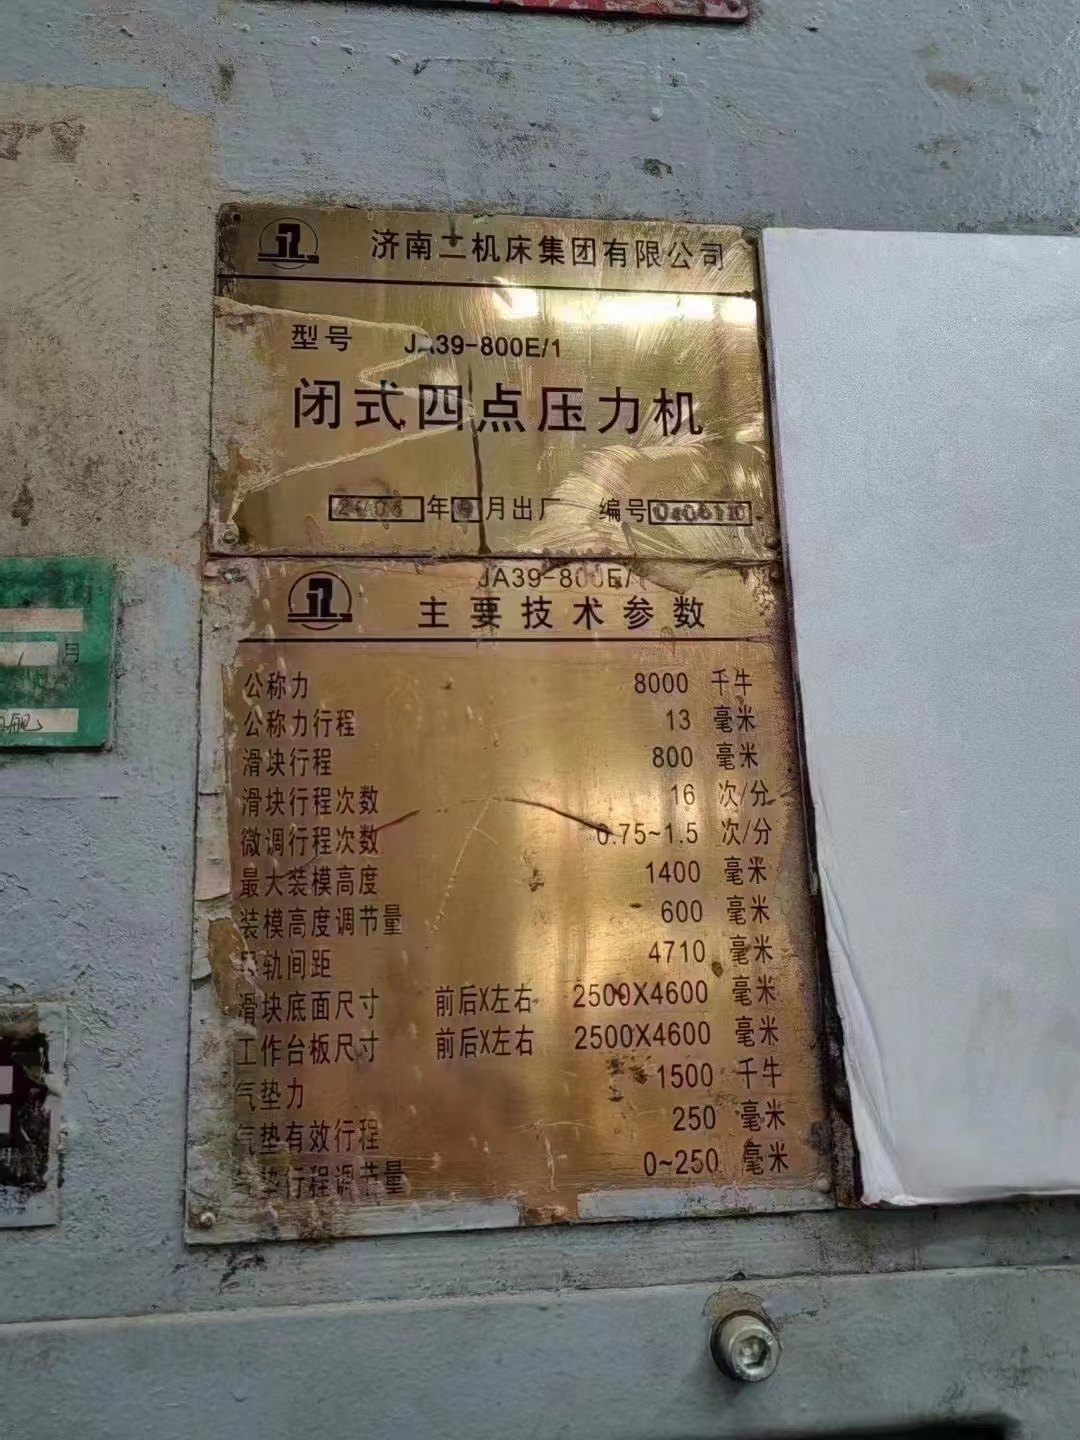 济南二机床集团有限公司
型号 JA39-800E/1
闭式四点压力机
年 月出厂 编号
JA39-800E/1
主要技术参数
公称力 8000 千牛
公称力行程 13 毫米
滑块行程 800 毫米
滑块行程次数 16 次/分
微调行程次数 0.75~1.5 次/分
最大装模高度 1400 毫米
装模高度调节量 600 毫米
轨间距 4710 毫米
滑块底面尺寸 前后X左右 2500X4600 毫米
工作台板尺寸 前后X左右 2500X4600 毫米
气垫力 1500 千牛
气垫有效行程 250 毫米
垫行程调节量 0~250 毫米
月